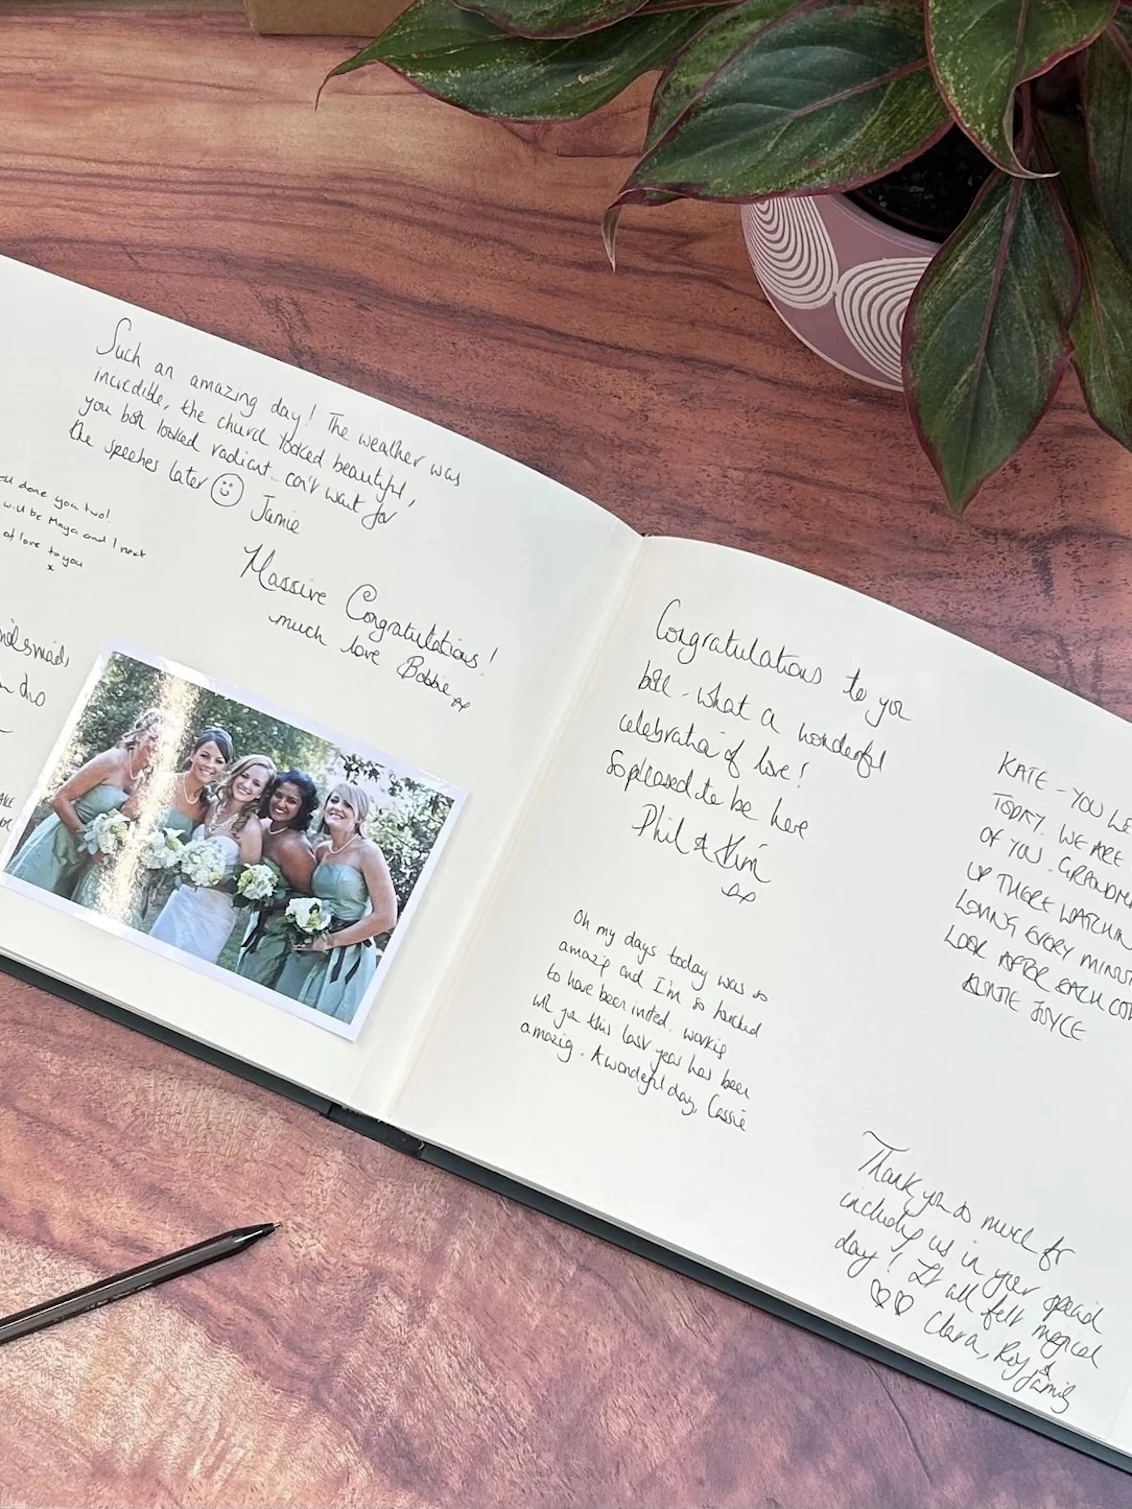 Such an amazing day! The weather was
incredible, the church looked beautiful,
you both looked radiant.. can't wait for
the speeches later ☺ Jamie
done you two!
will be Maya and I next
of love to you
x
Massive Congratulations!
much love Bobbie xx
Congratulations to you
both - what a wonderful
celebration of love!
So pleased to be here
Phil & Kim
xx
Oh my days today was so
amazing and I'm so touched
to have been invited. working
with you this last year has been
amazing. A wonderful day, Cassie
KATE - YOU
TODAY. WE ARE
OF YOU. GRANDMA
UP THERE WATCHING
LOVING EVERY MINUTE
LOOK AFTER EACH
AUNTIE JOYCE
Thank you so much for
including us in your special
day! It all felt magical
♡♡ Clara, Roy & family